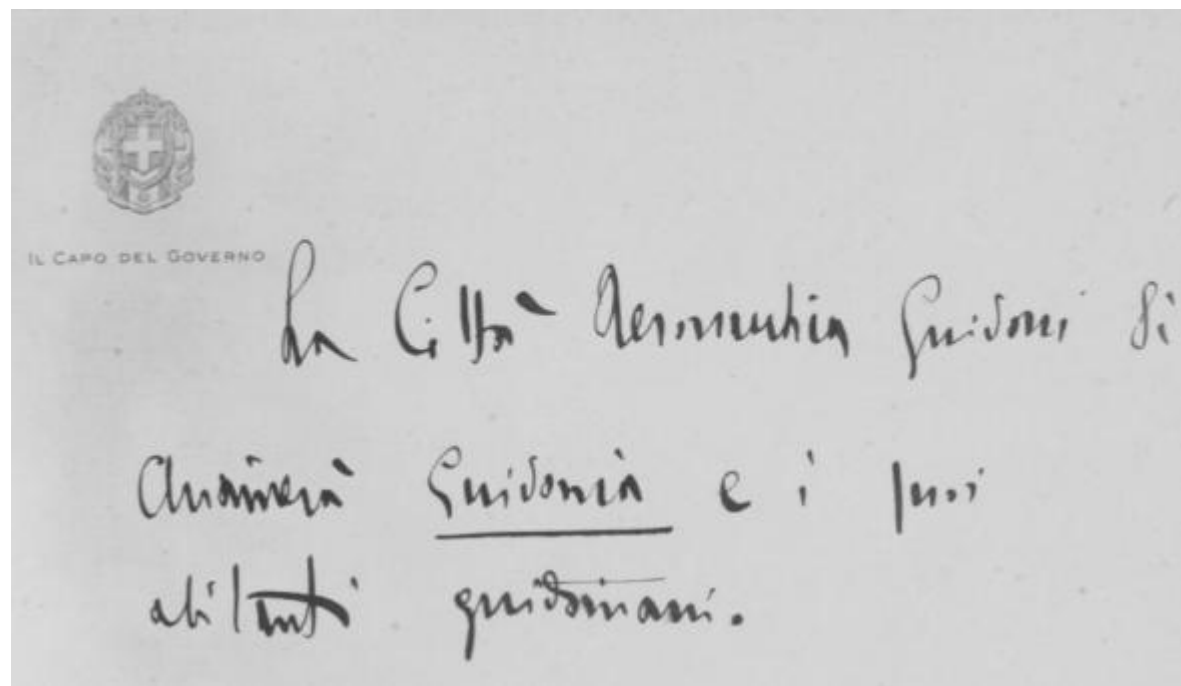 IL CAPO DEL GOVERNO
La Città Aeronautica Guidoni si
chiamerà Guidonia e i suoi
abitanti guidoniani.